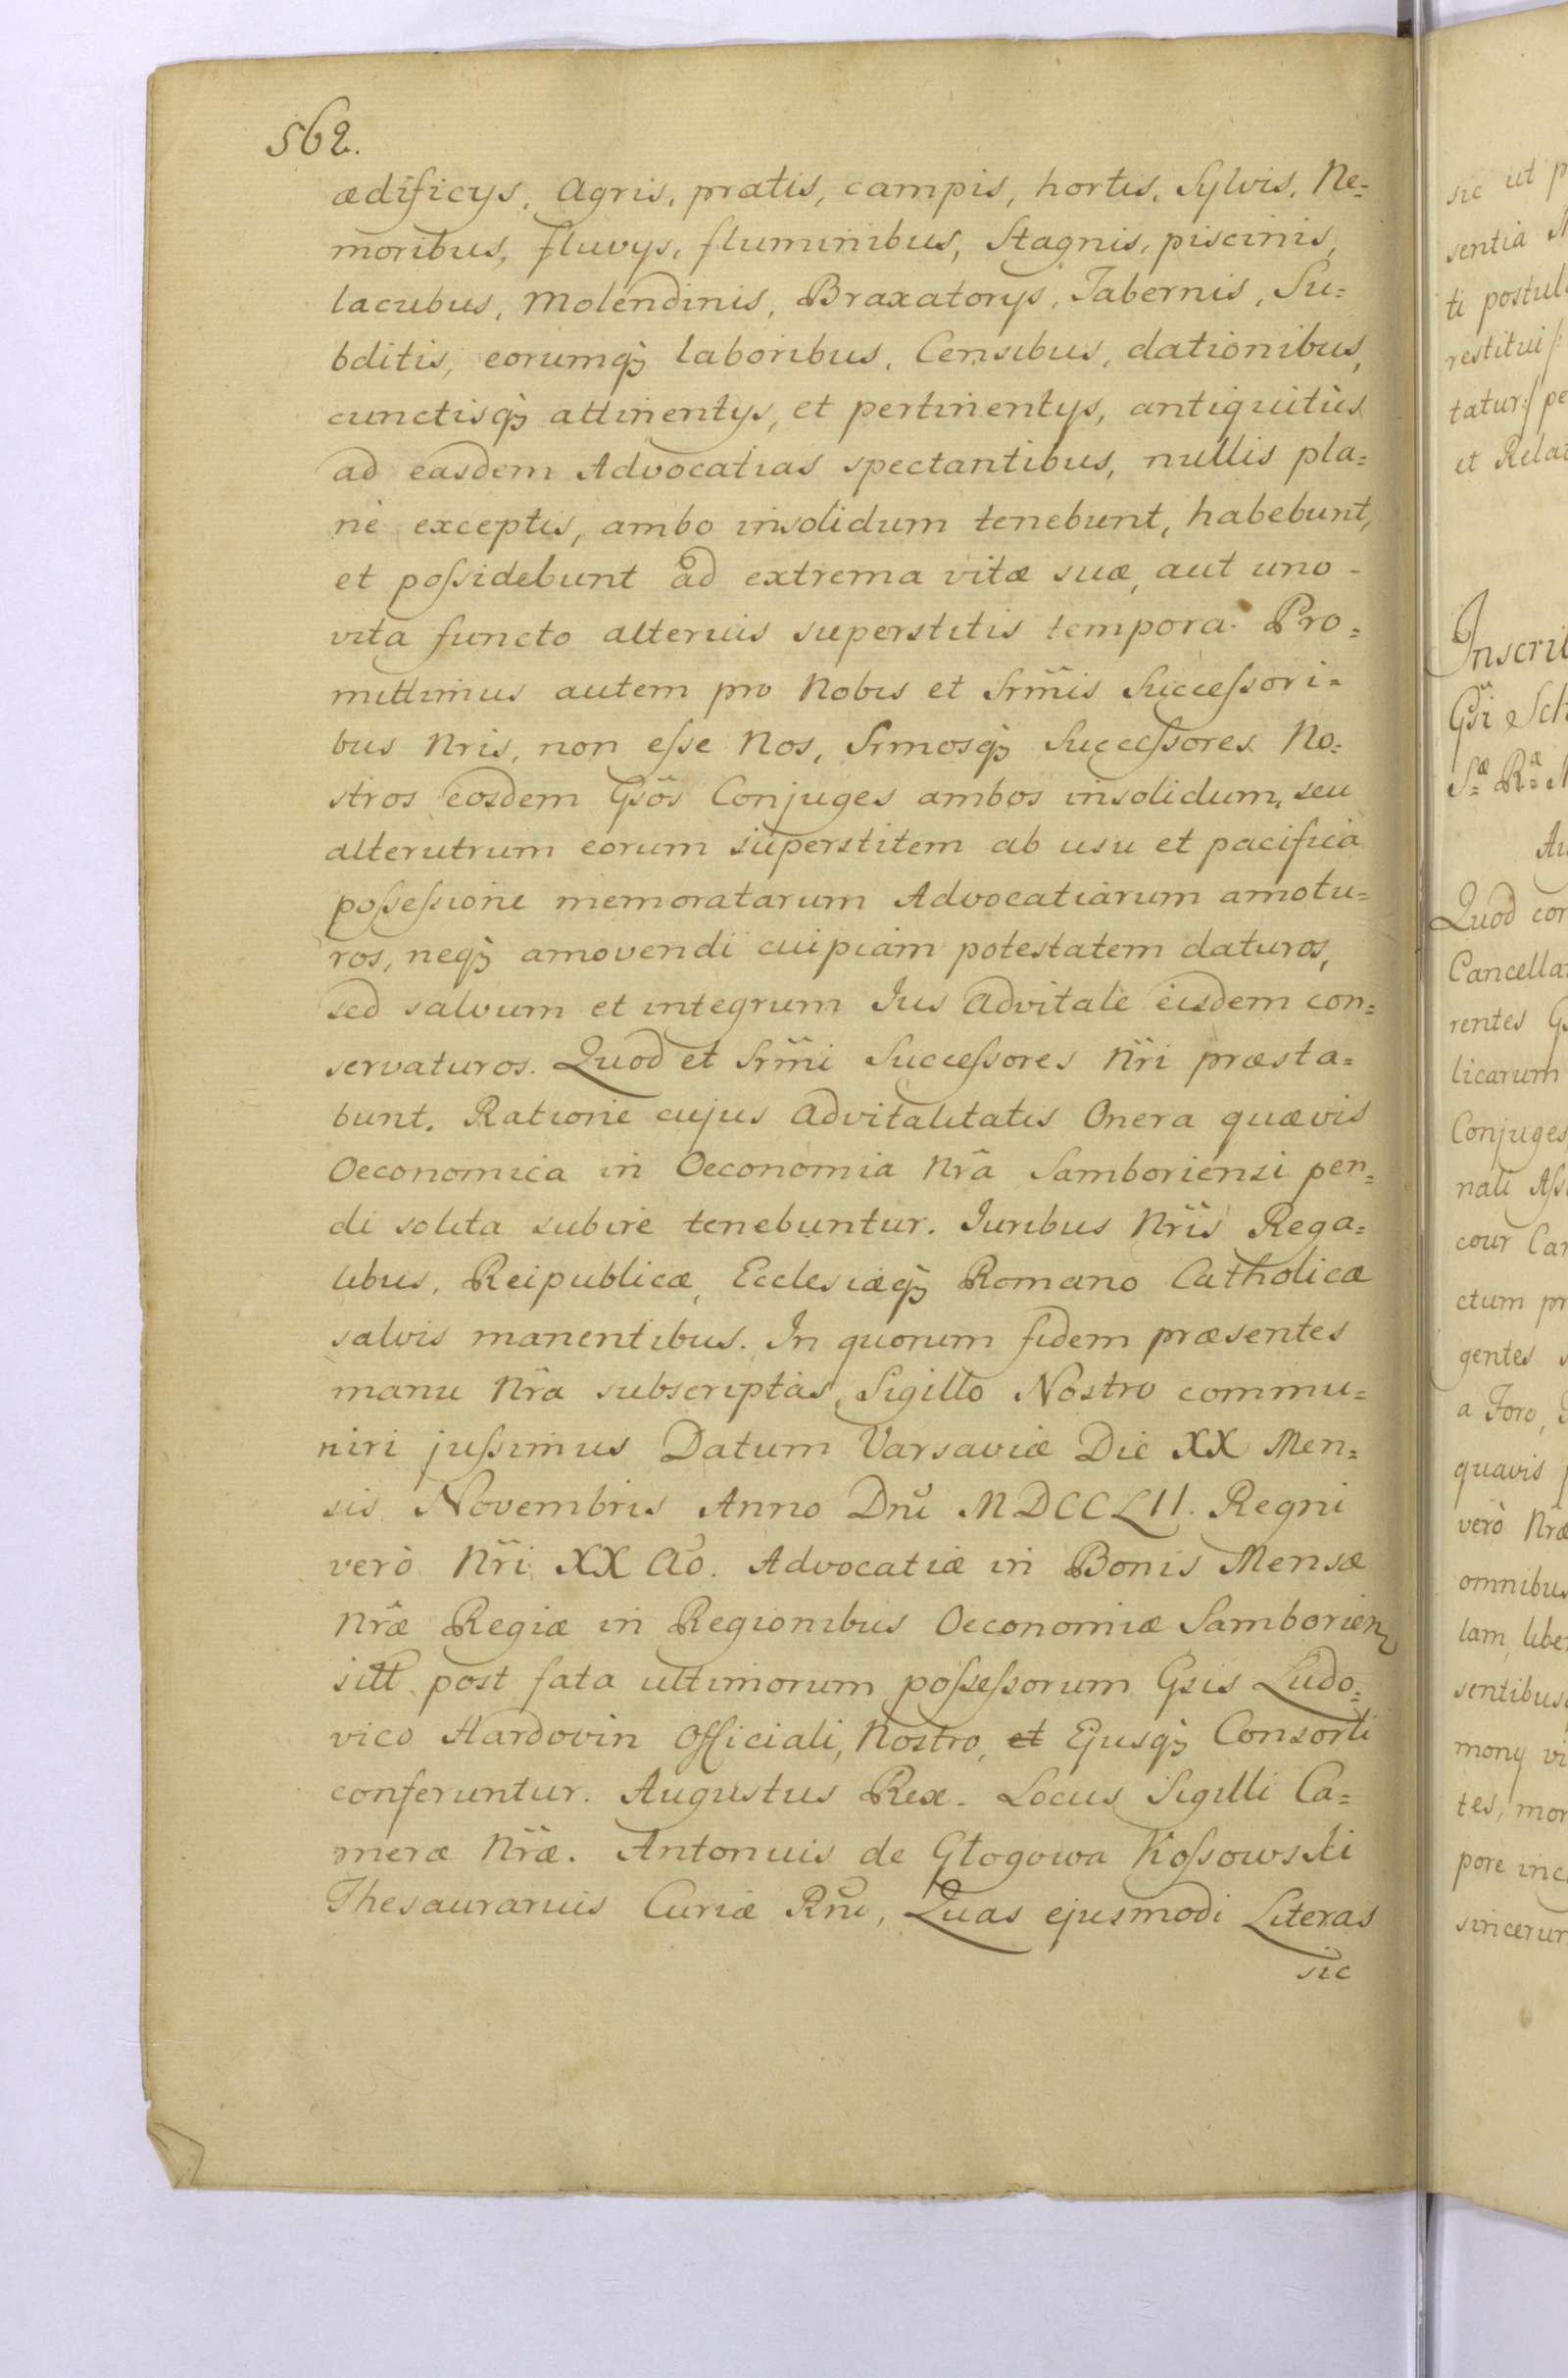 562.
ædificys, Agris, pratis, campis, hortis, Sylvis, Ne=
moribus, fluvys, fluminibus, Stagnis, piscinis,
lacubus, Molendinis, Braxatorys, Tabernis, Su=
bditis, eorumq꙳ laboribus, Censibus, dationibus,
cunctisq꙳ attinentys, et pertinentys, antiquitùs
ad easdem Advocatias spectantibus, nullis pla=
nè exceptis, ambo insolidum tenebunt, habebunt,
et poſsidebunt ad extrema vitæ suæ, aut uno -
vita functo alterius superstitis tempora. Pro=
mittimus autem pro Nobis et Srm̃is Succeſsori=
bus Nris, non eſse Nos, Srmosq꙳ Succeſsores No=
stros eosdem Gsõs Conjuges ambos insolidum, seu
alterutrum eorum superstitem ab usu et pacifica
poſseſsione memoratarum Advocatiarum amotu=
ros, neq꙳ amovendi cuipiam potestatem daturos,
sed salvum et integrum Ius Advitale eisdem con=
servaturos. Quod et Srm̃i Succeſsores Nr̃i præsta=
bunt. Ratione cujus Advitalitatis Onera quævis
Oeconomica in Oeconomia Nrã Samboriensi pen=
di solita subire tenebuntur. Iuribus Nrĩs Rega=
libus, Reipublicæ, Ecclesiæq꙳ Romano Catholicæ
salvis manentibus. In quorum fidem præsentes
manu Nrã subscriptas, Sigillo Nostro commu=
niri juſsimus Datum Varsaviæ Die XX Men=
sis Novembris Anno Dnĩ MDCCLII. Regni
verò Nr̃i XX Aõ. Advocatiæ in Bonis Mensæ
Nræ̃ Regiæ in Regionibus Oeconomiæ Samborien
sitt post fata ultimorum poſseſsorum Gsis Ludo=
vico Hardovin Officiali, Nostro, et Ejusq꙳ Consorti
conferuntur. Augustus Rex. Locus Sigilli Ca=
meræ Nræ̃. Antonius de Głogowa Koſsowski
Thesaurarius Curiæ Rnĩ, Quas ejusmodi Literas
sic
sic ut p
sentia
ti postul
restitui
tatur: pe
et Rela
Inscri
Gsĩ Sch
Quod con
Cancella
rentes
licarum
Conjuges
nali
cour Ca
ctum pr
gentes
a Foro,
quavis
verò Nræ
omnibus
lam, libe
sentibus
mony vi
tes, mor
pore inc
sincerum